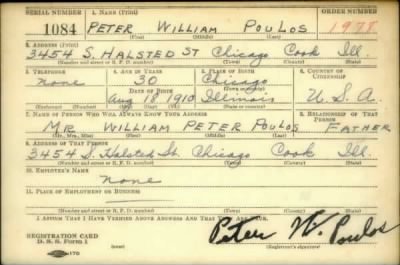 SERIAL NUMBER 1. NAME (Print) ORDER NUMBER
1084 PETER WILLIAM POULOS 1978
(First) (Middle) (Last)
2. ADDRESS (Print)
3454 S. HALSTED ST Chicago Cook Ill.
(Number and street or R. F. D. number) (Town) (County) (State)
3. TELEPHONE 4. AGE IN YEARS 5. PLACE OF BIRTH 6. COUNTRY OF CITIZENSHIP
none 30 Chicago
DATE OF BIRTH
Aug 18 1910 Illinois U.S.A.
(Exchange) (Number) (Mo.) (Day) (Yr.) (State or country)
7. NAME OF PERSON WHO WILL ALWAYS KNOW YOUR ADDRESS 8. RELATIONSHIP OF THAT PERSON
MR WILLIAM PETER POULOS FATHER
(Mr., Mrs., Miss) (First) (Middle) (Last)
9. ADDRESS OF THAT PERSON
3454 S. Halsted St. Chicago Cook Ill.
(Number and street or R. F. D. number) (Town) (County) (State)
10. EMPLOYER'S NAME
none
11. PLACE OF EMPLOYMENT OR BUSINESS
(Number and street or R. F. D. number) (Town) (County) (State)
I AFFIRM THAT I HAVE VERIFIED ABOVE ANSWERS AND THAT THEY ARE TRUE.
REGISTRATION CARD
D. S. S. Form 1
Peter W. Poulos
(Registrant's signature)